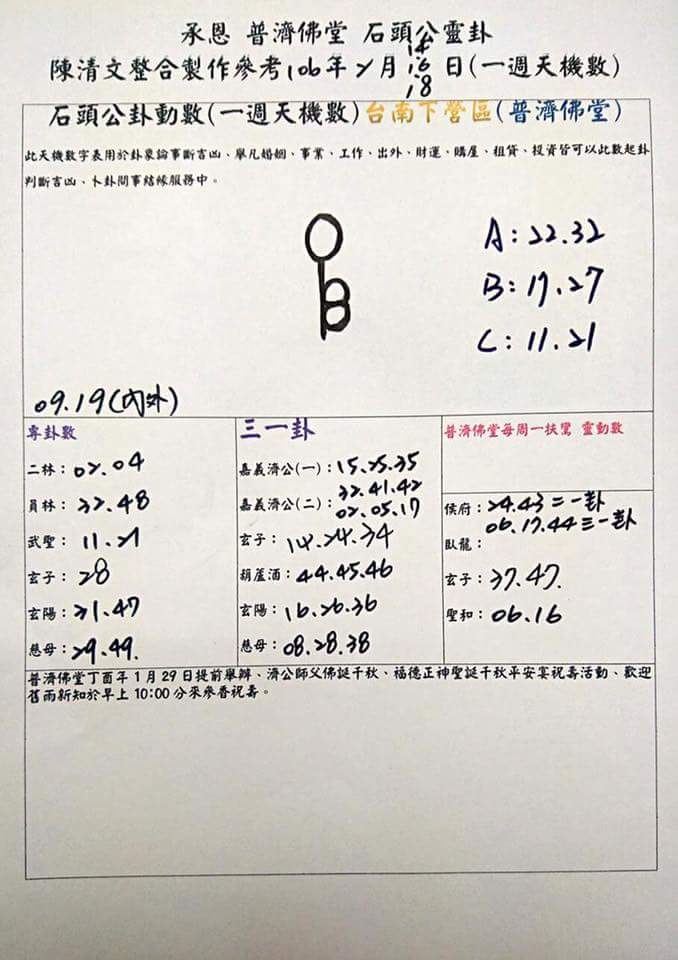 承恩 普濟佛堂 石頭公靈卦
14
陳清文整合製作參考106年2月16日(一週天機數)
18
石頭公卦動數(一週天機數)台南下營區(普濟佛堂)
此天機数字表用於卦象論事斷吉凶、舉凡婚姻、事業、工作、出外、財運、購屋、租貸、投資皆可以此數起卦
判斷吉凶、卜卦問事結緣服務中。
A:22.32
B:17.27
C:11.21
09.19(內外)
專卦數
二林:02.04
員林:32.48
武聖:11.21
玄子:28
玄陽:21.47
慈母:29.49.
三一卦
嘉義濟公(一):15.25.35
32.41.42
嘉義濟公(二):02.05.17
玄子:14.24.34
胡蘆酒:44.45.46
玄陽:16.26.36
慈母:08.28.38
普濟佛堂每周一扶鸞 靈動數
侯府:24.43二一卦
06.17.44三一卦
臥龍:
玄子:37.47.
聖和:06.16
普濟佛堂丁酉年1月29日提前舉辦、濟公師父佛誕千秋、福德正神聖誕千秋平安宴祝壽活動、歡迎
舊雨新知於早上10:00分來參香祝壽。